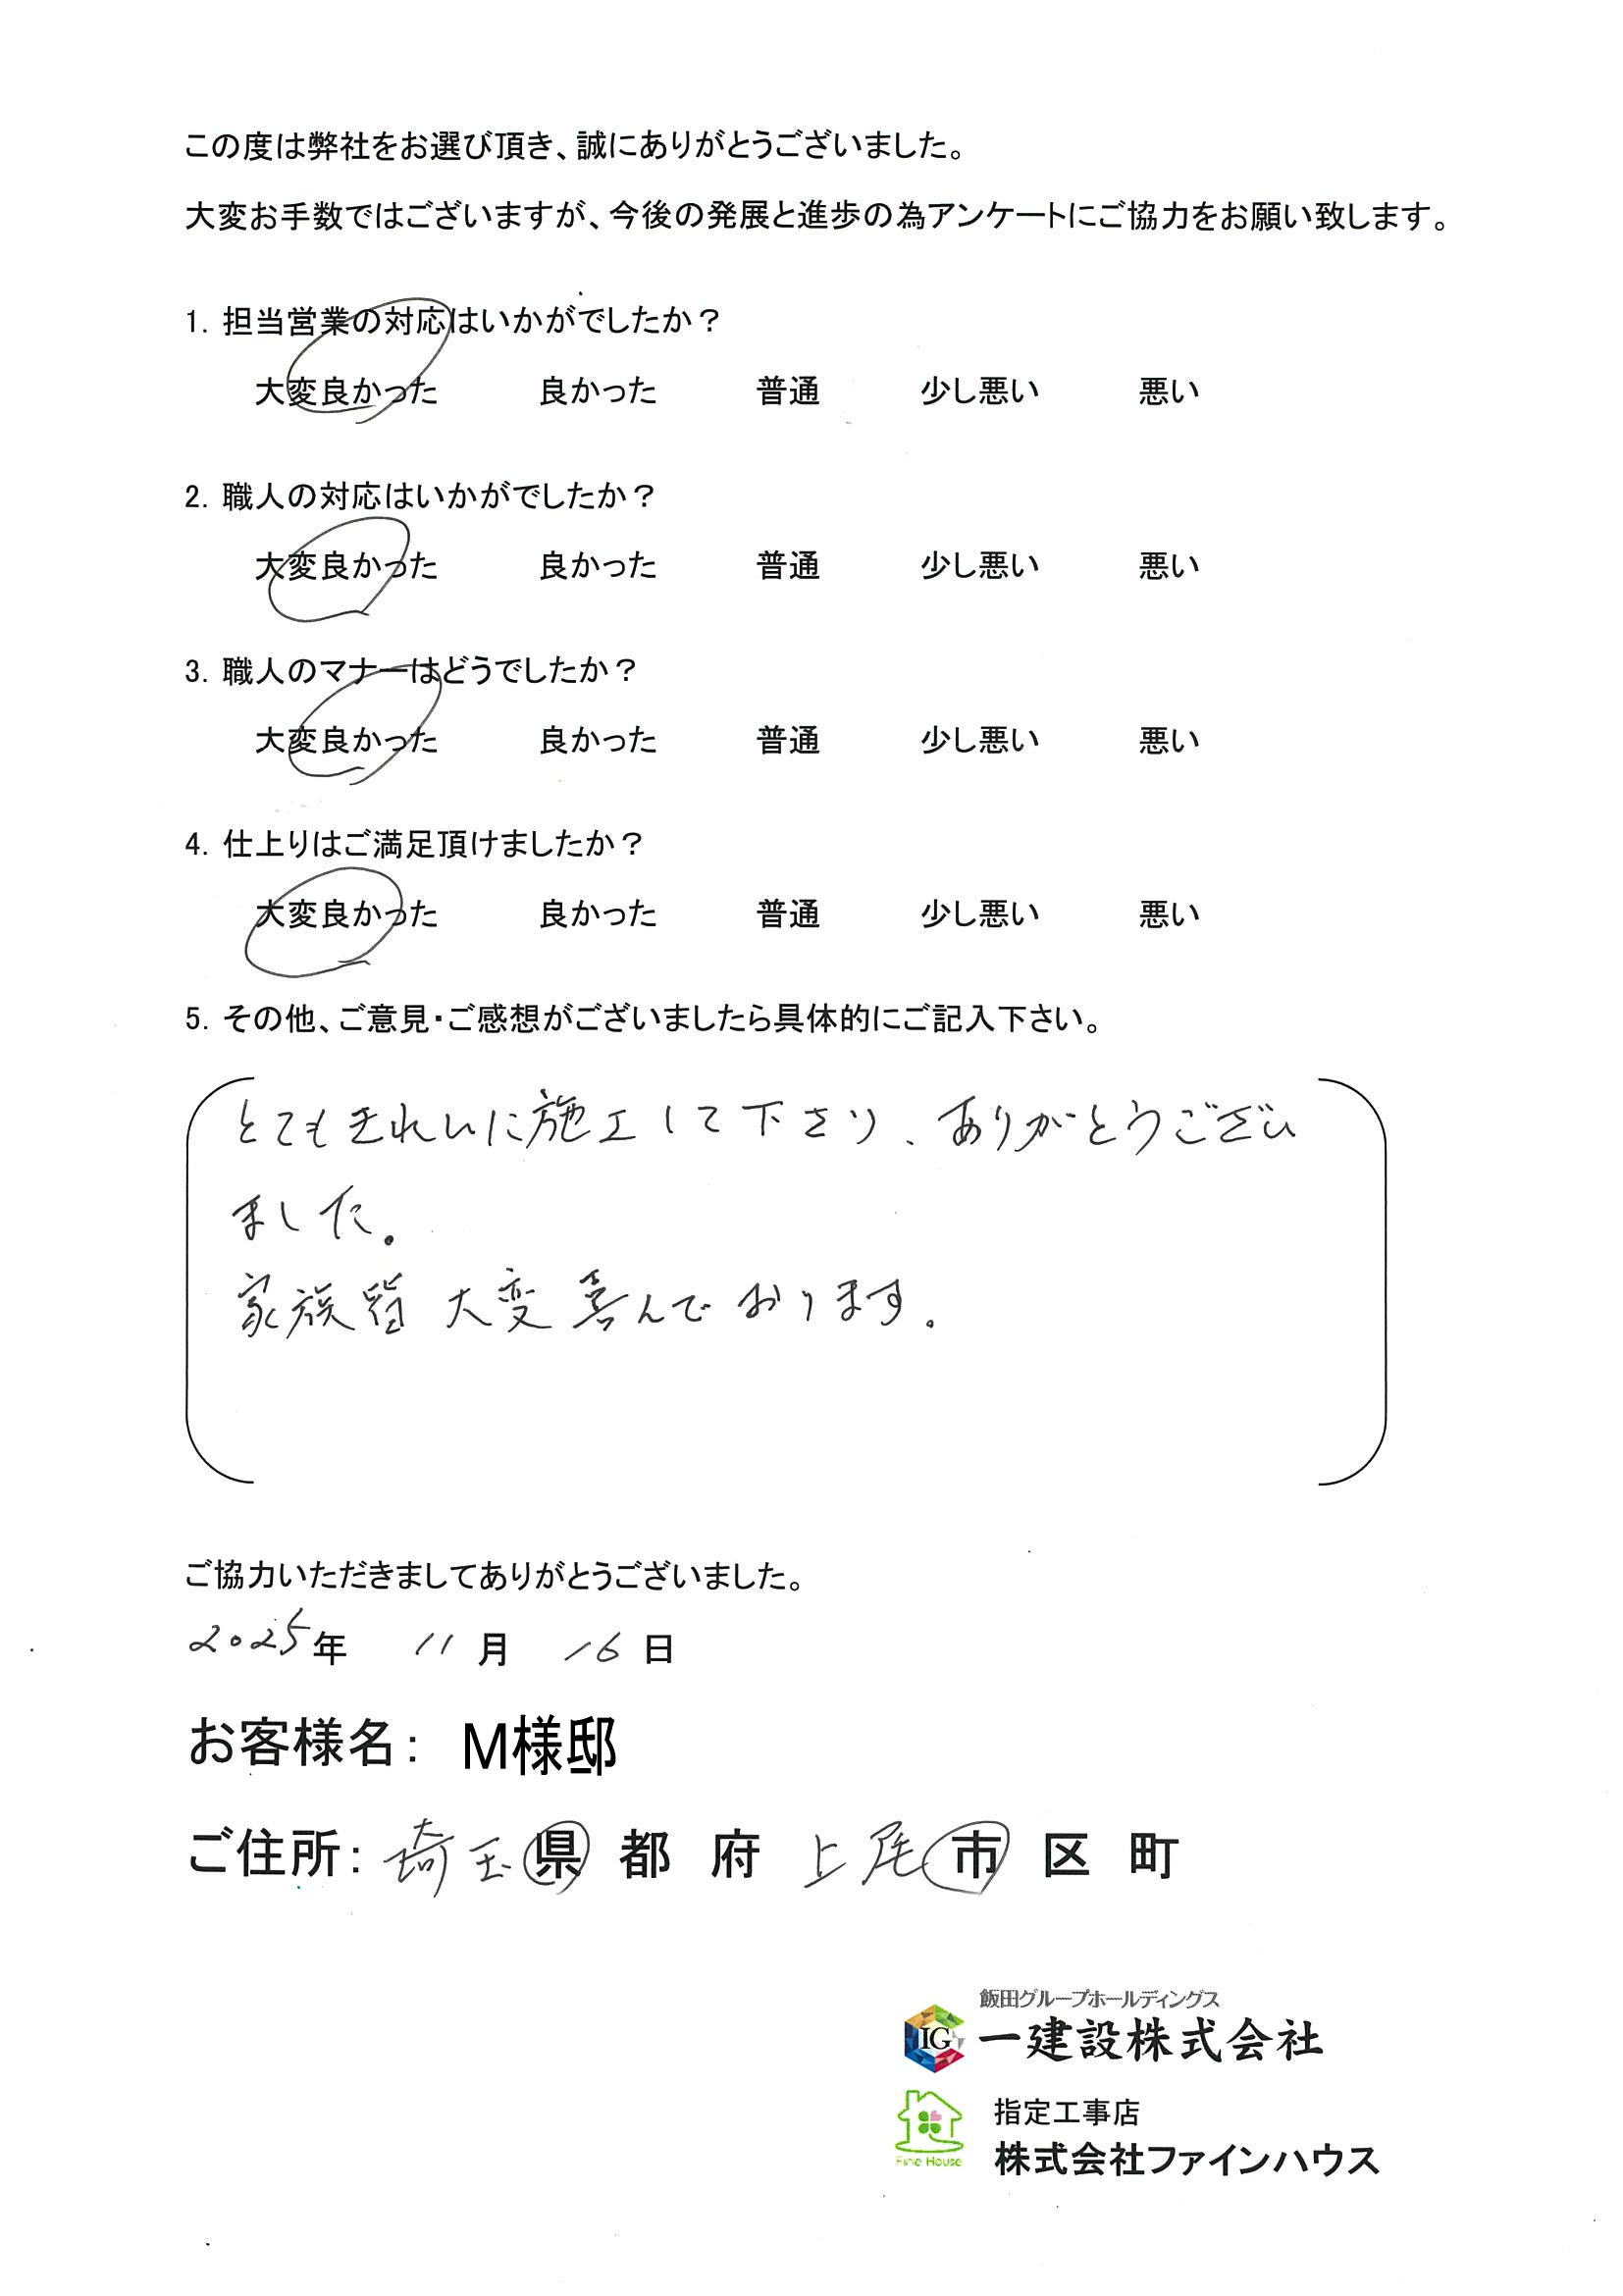 この度は弊社をお選び頂き、誠にありがとうございました。
大変お手数ではございますが、今後の発展と進歩の為アンケートにご協力をお願い致します。
1. 担当営業の対応はいかがでしたか？
大変良かった 良かった 普通 少し悪い 悪い
2. 職人の対応はいかがでしたか？
大変良かった 良かった 普通 少し悪い 悪い
3. 職人のマナーはどうでしたか？
大変良かった 良かった 普通 少し悪い 悪い
4. 仕上りはご満足頂けましたか？
大変良かった 良かった 普通 少し悪い 悪い
5. その他、ご意見・ご感想がございましたら具体的にご記入下さい。
とてもきれいに施工して下さり、ありがとうござい
ました。
家族皆 大変喜んでおります。
ご協力いただきましてありがとうございました。
2025年 11月 16日
お客様名： M様邸
ご住所： 埼玉 県 都 府 上尾 市 区 町
飯田グループホールディングス
IG 一建設株式会社
指定工事店
Fine House 株式会社ファインハウス